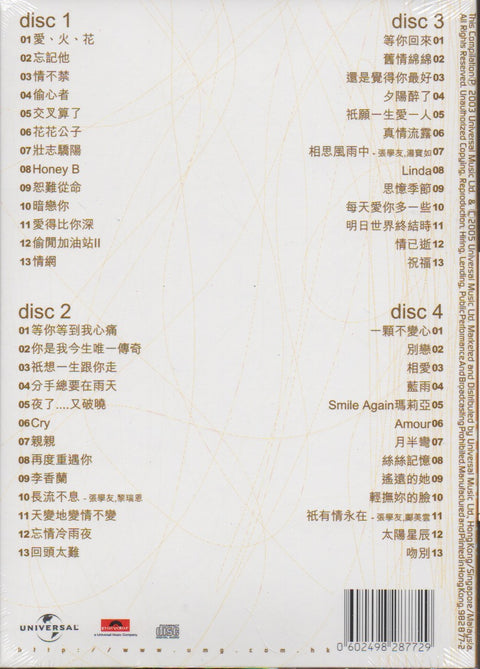 disc 1
01愛、火、花
02忘記他
03情不禁
04偷心者
05交叉算了
06花花公子
07壯志驕陽
08Honey B
09恕難從命
10暗戀你
11愛得比你深
12偷閒加油站II
13情網
disc 2
01等你等到我心痛
02你是我今生唯一傳奇
03祇想一生跟你走
04分手總要在雨天
05夜了....又破曉
06Cry
07親親
08再度重遇你
09李香蘭
10長流不息 - 張學友,黎瑞恩
11天變地變情不變
12忘情冷雨夜
13回頭太難
disc 3
等你回來01
舊情綿綿02
還是覺得你最好03
夕陽醉了04
祇願一生愛一人05
真情流露06
相思風雨中 - 張學友,湯寶如07
Linda08
思憶季節09
每天愛你多一些10
明日世界終結時11
情已逝12
祝福13
disc 4
一顆不變心01
別戀02
相愛03
藍雨04
Smile Again瑪莉亞05
Amour06
月半彎07
絲絲記憶08
遙遠的她09
輕撫妳的臉10
祇有情永在 - 張學友,鄺美雲11
太陽星辰12
吻別13
This Compilation ℗ 2003 Universal Music Ltd. & © 2005 Universal Music Ltd. Marketed and Distributed by Universal Music Ltd., Hong Kong/Singapore/Malaysia.
All Rights Reserved. Unauthorized Copying, Reproduction, Hiring, Lending, Public Performance And Broadcasting Prohibited. Manufactured and Printed in Hong Kong. 982 877-2
UNIVERSAL
polydor
a Universal Music Company
COMPACT disc DIGITAL AUDIO
http://www.umg.com.hk
0 602498 287729